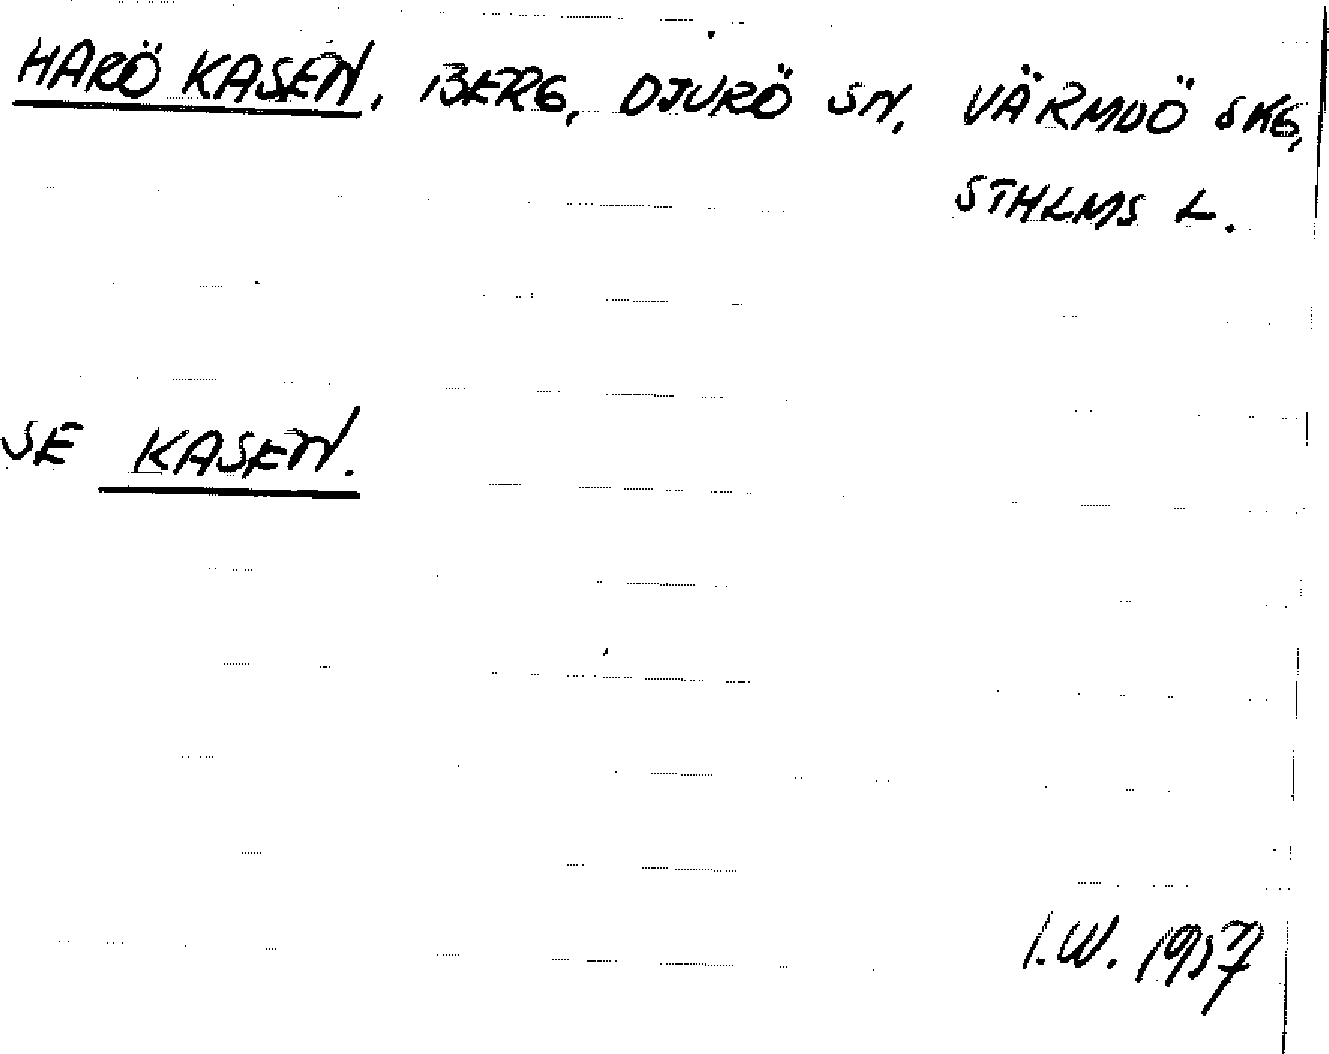 HARÖ KASEN, BERG, DJURÖ SN, VÄRMDÖ SKG,
STHLMS L.
SE KASEN.
I.W. 1957